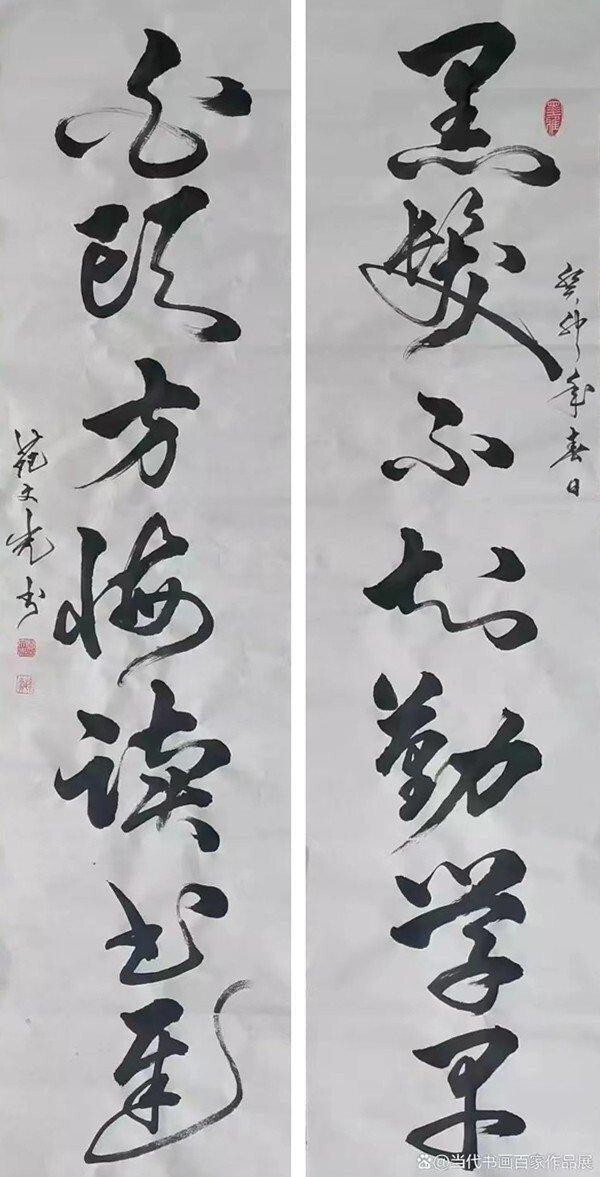 黑发不知勤学早
癸卯年春日
白头方悔读书迟
范文光书
@当代书画百家作品展